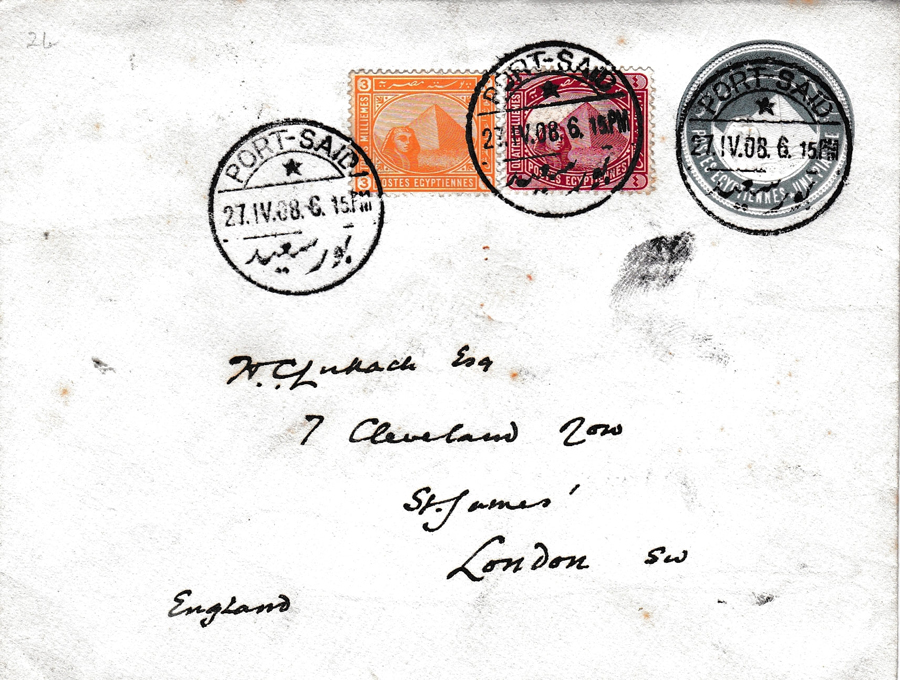 26
3
3
MILLIEMES
POSTES EGYPTIENNES
POSTES EGYPTIENNES
PORT-SAID
27.IV.08.6.15PM
بور سعيد
PORT-SAID
27.IV.08.6.15PM
بور سعيد
PORT-SAID
27.IV.08.6.15PM
بور سعيد
POSTES EGYPTIENNES
H.C. Lukach Esq
7 Cleveland Row
St. James'
London SW
England